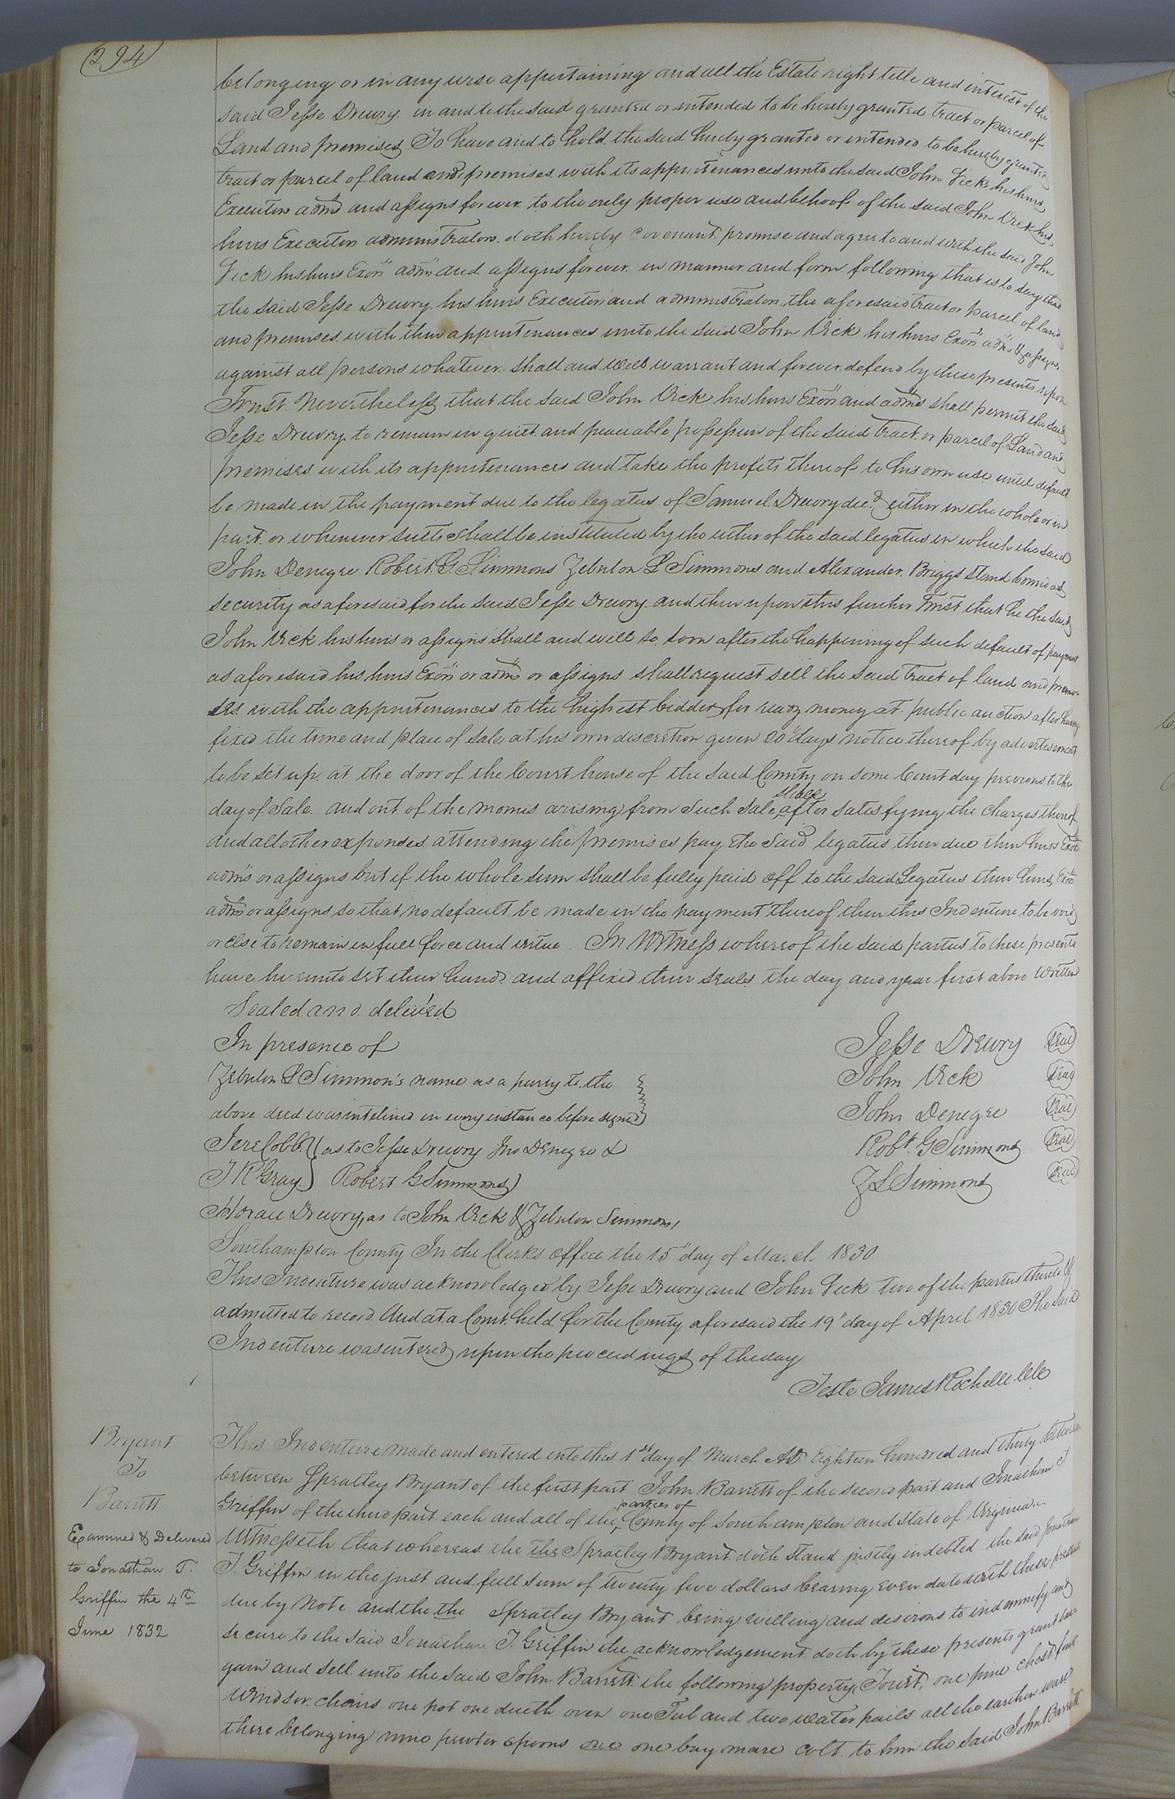 294
belonging or in any wise appertaining and all the Estate right title and interest of the
said Jesse Drewry in and to the said granted or intended to be hereby granted tract or parcel of
Land and premises To have and to hold the said hereby granted or intended to be hereby granted
tract or parcel of land and premises with its appurtenances unto the said John Vick his heirs
Executors adms and assigns forever to the only proper use and behoof of the said John Vick his
heirs Executors administrators doth hereby Covenant promise and agree to and with the said John
Vick his heirs Exors adms and assigns forever in manner and form following that is to say that
the said Jesse Drewry his heirs Executors and administrators the aforesaid tract or parcel of land
and premises with their appurtenances unto the said John Vick his heirs Exors adms & assigns
against all persons whatever shall and will warrant and forever defend by these presents upon
Trust Nevertheless that the said John Vick his heirs Exors and adms shall permit the said
Jesse Drewry to remain in quiet and peaceable possession of the said tract or parcel of Land and
premises with its appurtenances and take the profits thereof to his own use until default
be made in the payment due to the legatees of Samuel Drewry decd either in the whole or in
part or whenever suits shall be instituted by the either of the said legatees in which the said
John Denegre Robert G Simmons Zebulon S Simmons and Alexander Briggs stand bound as
security as aforesaid for the said Jesse Drewry and then upon this further Trust that he the said
John Vick his heirs or assigns shall and will so soon after the happening of such default of payment
as aforesaid his heirs Exors or adms or assigns shall request sell the said tract of land and premi-
ses with the appurtenances to the highest bidder for ready money at public auction after having
fixed the time and place of sale at his own discretion given 20 days notice thereof by advertisement
to be set up at the door of the Court house of the said County on some Court day previous to the
day of Sale and out of the monies arising from such sale shall after satisfying the charges thereof
and all other expenses attending the premises pay the said legatees then due their heirs Exors
adms or assigns but if the whole sum shall be fully paid off to the said Legatees their heirs Exors
adms or assigns so that no default be made in the payment thereof then this Indenture to be void
or else to remain in full force and virtue. In Witness whereof the said parties to these presents
have hereunto set their hands and affixed their seals the day and year first above Written
Sealed and delived
In presence of
Jesse Drewry Seal
Zebulon S Simmons's name as a party to the
John Vick Seal
above deed was interlined in every instance before signed
John Denegre Seal
Jere Cobb } as to Jesse Drewry Jno Denegre &
Robt G Simmons Seal
J R Gray } Robert G Simmons
Z S Simmons Seal
Horace Drewry as to John Vick & Zebulon Simmons
Southampton County In the Clerks office the 15th day of March 1830
This Indenture was acknowledged by Jesse Drewry and John Vick two of the parties thereto &
admitted to record And at a Court held for the County aforesaid the 19th day of April 1830 The said
Indenture was entered upon the proceedings of the day
Teste James Rochelle Clk
Bryant
To
Barrett
Examined & Delivered
to Jonathan T.
Griffin the 4th
June 1832
This Indenture made and entered into this 1st day of March AD Eighteen hundred and thirty
between Spratley Bryant of the first part John Barrett of the second part and Jonathan T
Griffin of the third part each and all of the parties of County of Southampton and State of Virginia
Witnesseth that whereas the the Spratley Bryant doth stand justly indebted the said Jonathan
T. Griffin in the just and full sum of twenty five dollars bearing even date with these presents
due by Note and the the Spratley Bryant being willing and desirous to indemnify and
secure to the said Jonathan T Griffin the acknowledgement doth by these presents grant bar-
gain and sell unto the said John Barrett the following property, To wit, one pine chest four
Windsor chairs one pot one duth oven one Tub and two water pails all the earthen ware
there belonging nine pewter spoons one one bay mare colt to him the said John Barrett